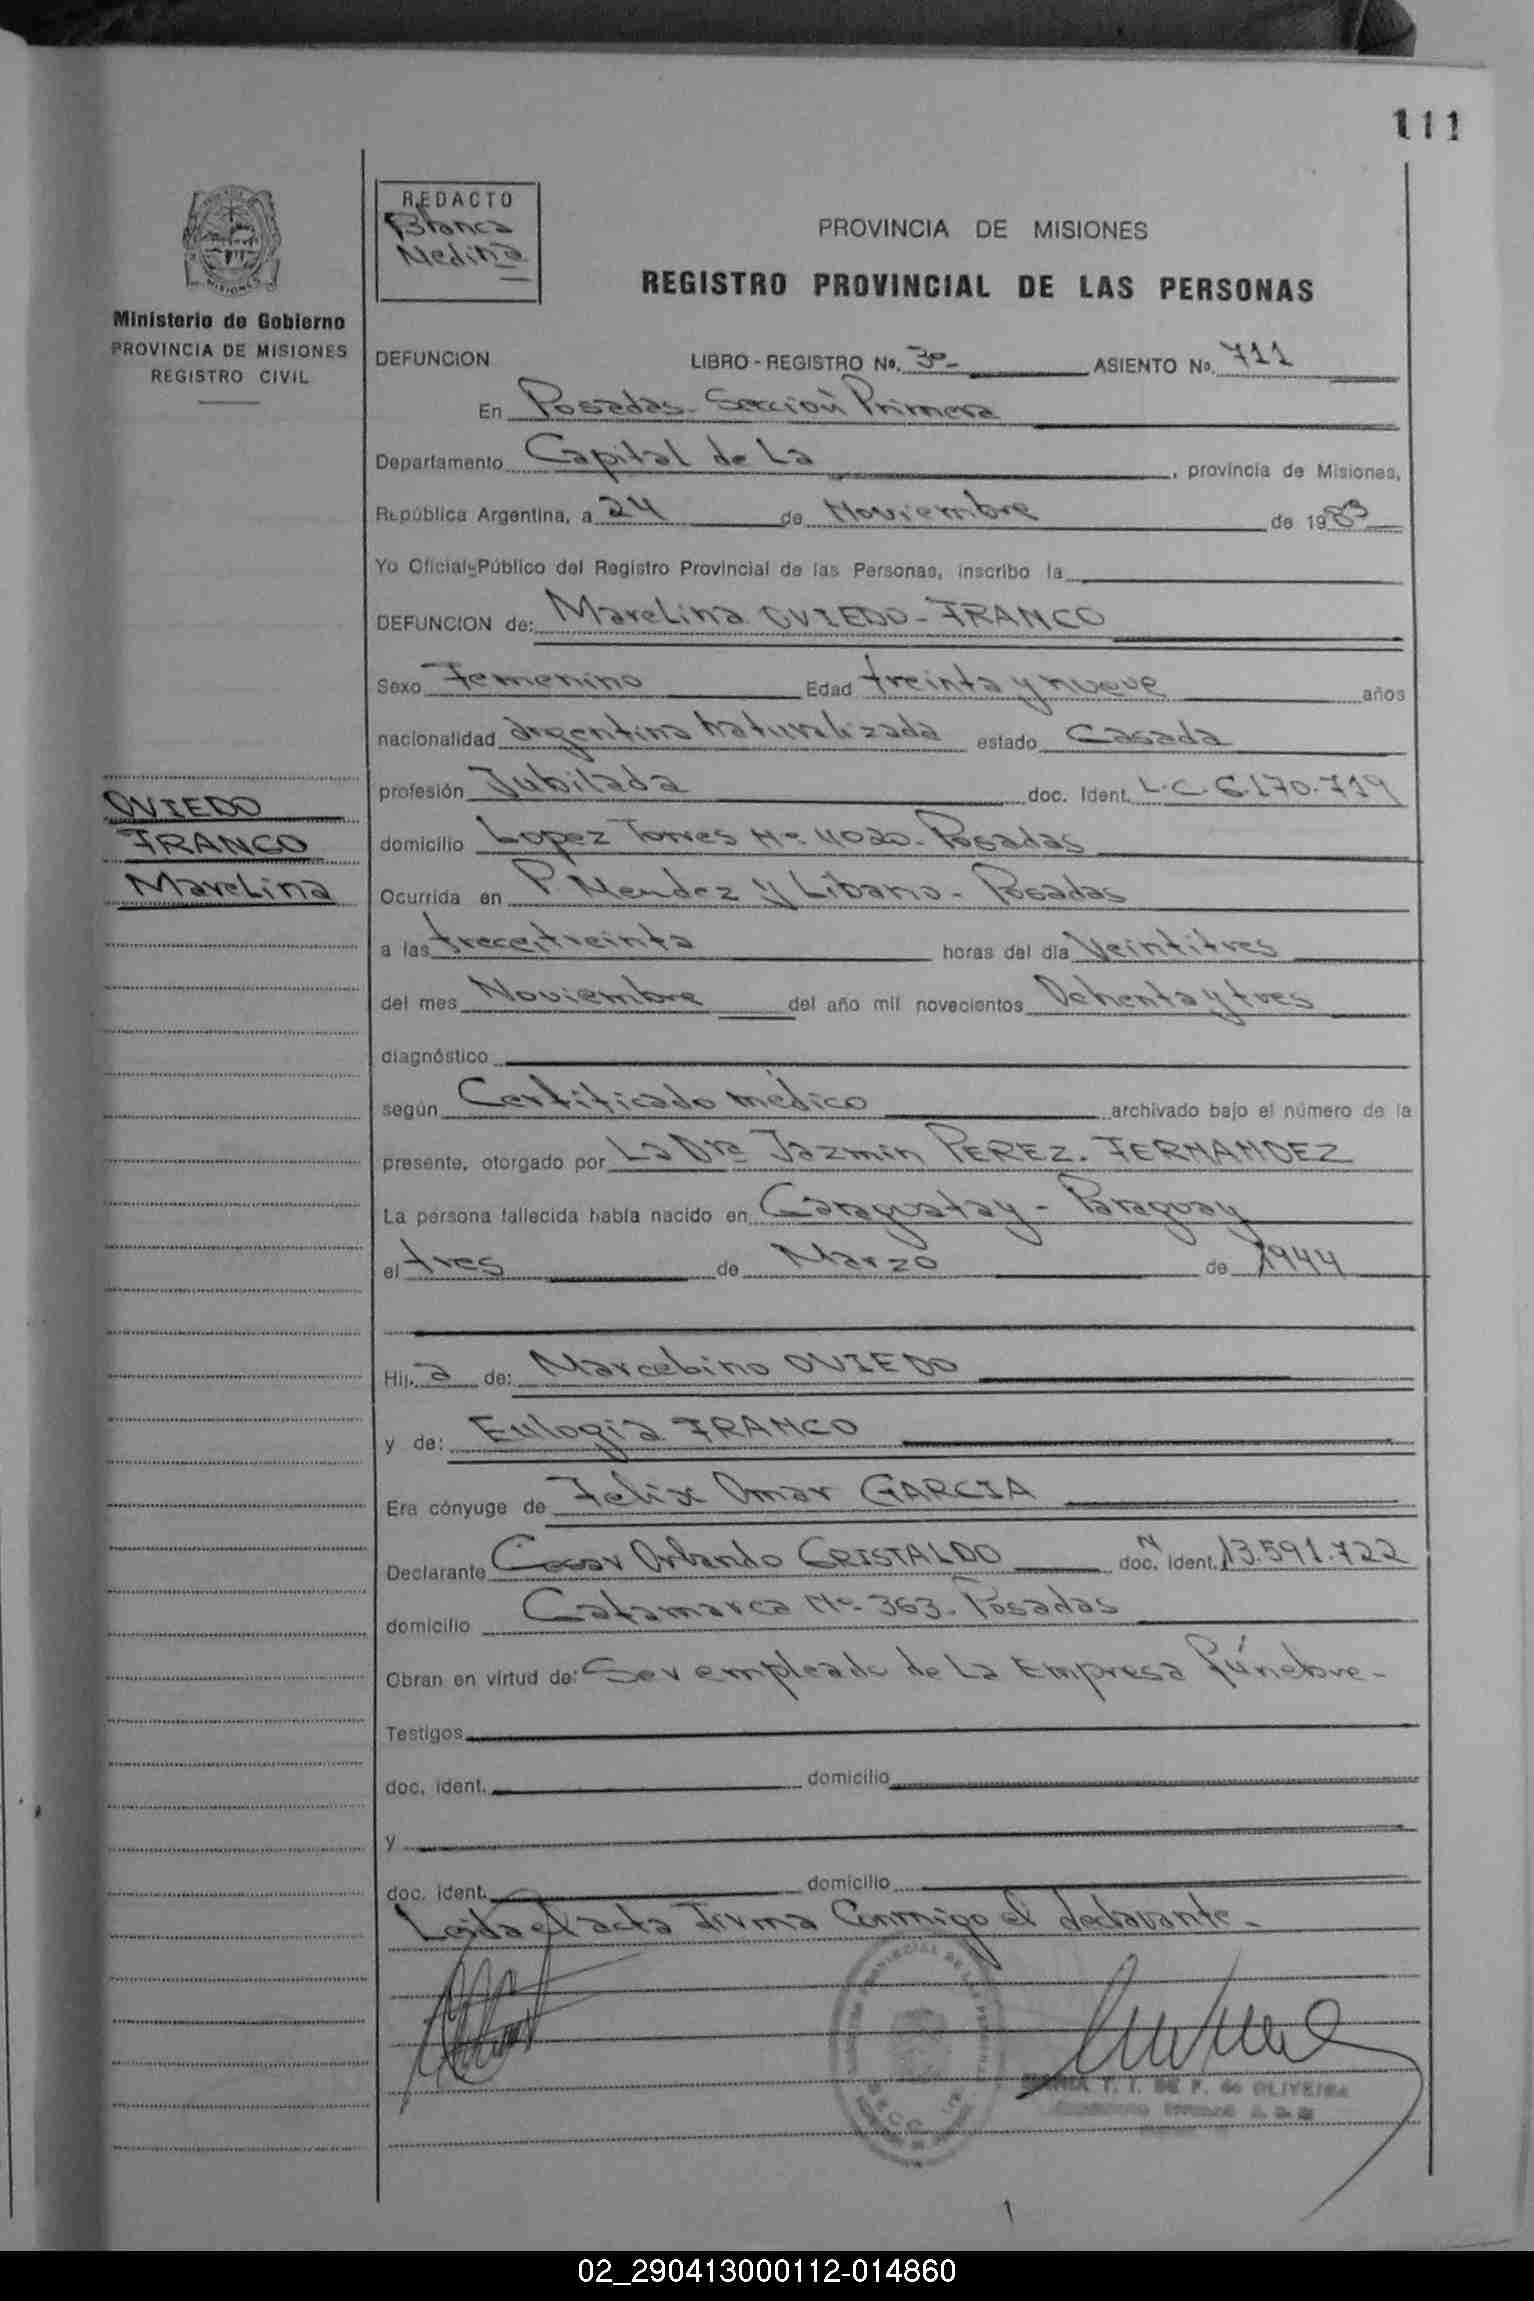 111
REDACTO
Blanca
Medina
PROVINCIA DE MISIONES
REGISTRO PROVINCIAL DE LAS PERSONAS
Ministerio de Gobierno
PROVINCIA DE MISIONES
REGISTRO CIVIL
DEFUNCION LIBRO - REGISTRO No. 3º- ASIENTO No. 711
En Posadas- Sección Primera
Departamento Capital de La , provincia de Misiones,
República Argentina, a 24 de Noviembre de 1983
Yo Oficial Público del Registro Provincial de las Personas, inscribo la
DEFUNCION de: Marelina OVIEDO- FRANCO
Sexo Femenino Edad treinta y nueve años
nacionalidad argentina naturalizada estado Casada
profesión Jubilada doc. Ident. L.C. 6.170.719
OVIEDO
FRANCO
Marelina
domicilio Lopez Torres Nº 4020- Posadas
Ocurrida en P. Mendez y Libano- Posadas
a las trece,treinta horas del día Veintitres
del mes Noviembre del año mil novecientos Ochenta y tres
diagnóstico
según Certificado médico archivado bajo el número de la
presente, otorgado por La Dra Jazmin PEREZ- FERNANDEZ
La persona fallecida había nacido en Caraguatay- Paraguay
el tres de Marzo de 1944
Hij a de: Marcelino OVIEDO
y de: Eulogia FRANCO
Era cónyuge de Felix Omar GARCIA
Declarante Cesar Orlando CRISTALDO doc. N ident. 13.591.722
domicilio Catamarca Nº 363- Posadas
Obran en virtud de: Ser empleado de La Empresa Fúnebre-
Testigos
doc. ident. domicilio
y
doc. ident. domicilio
Leida el acta Firma Conmigo el declarante-
T. I. DE F. de OLIVEIRA
02_290413000112-014860